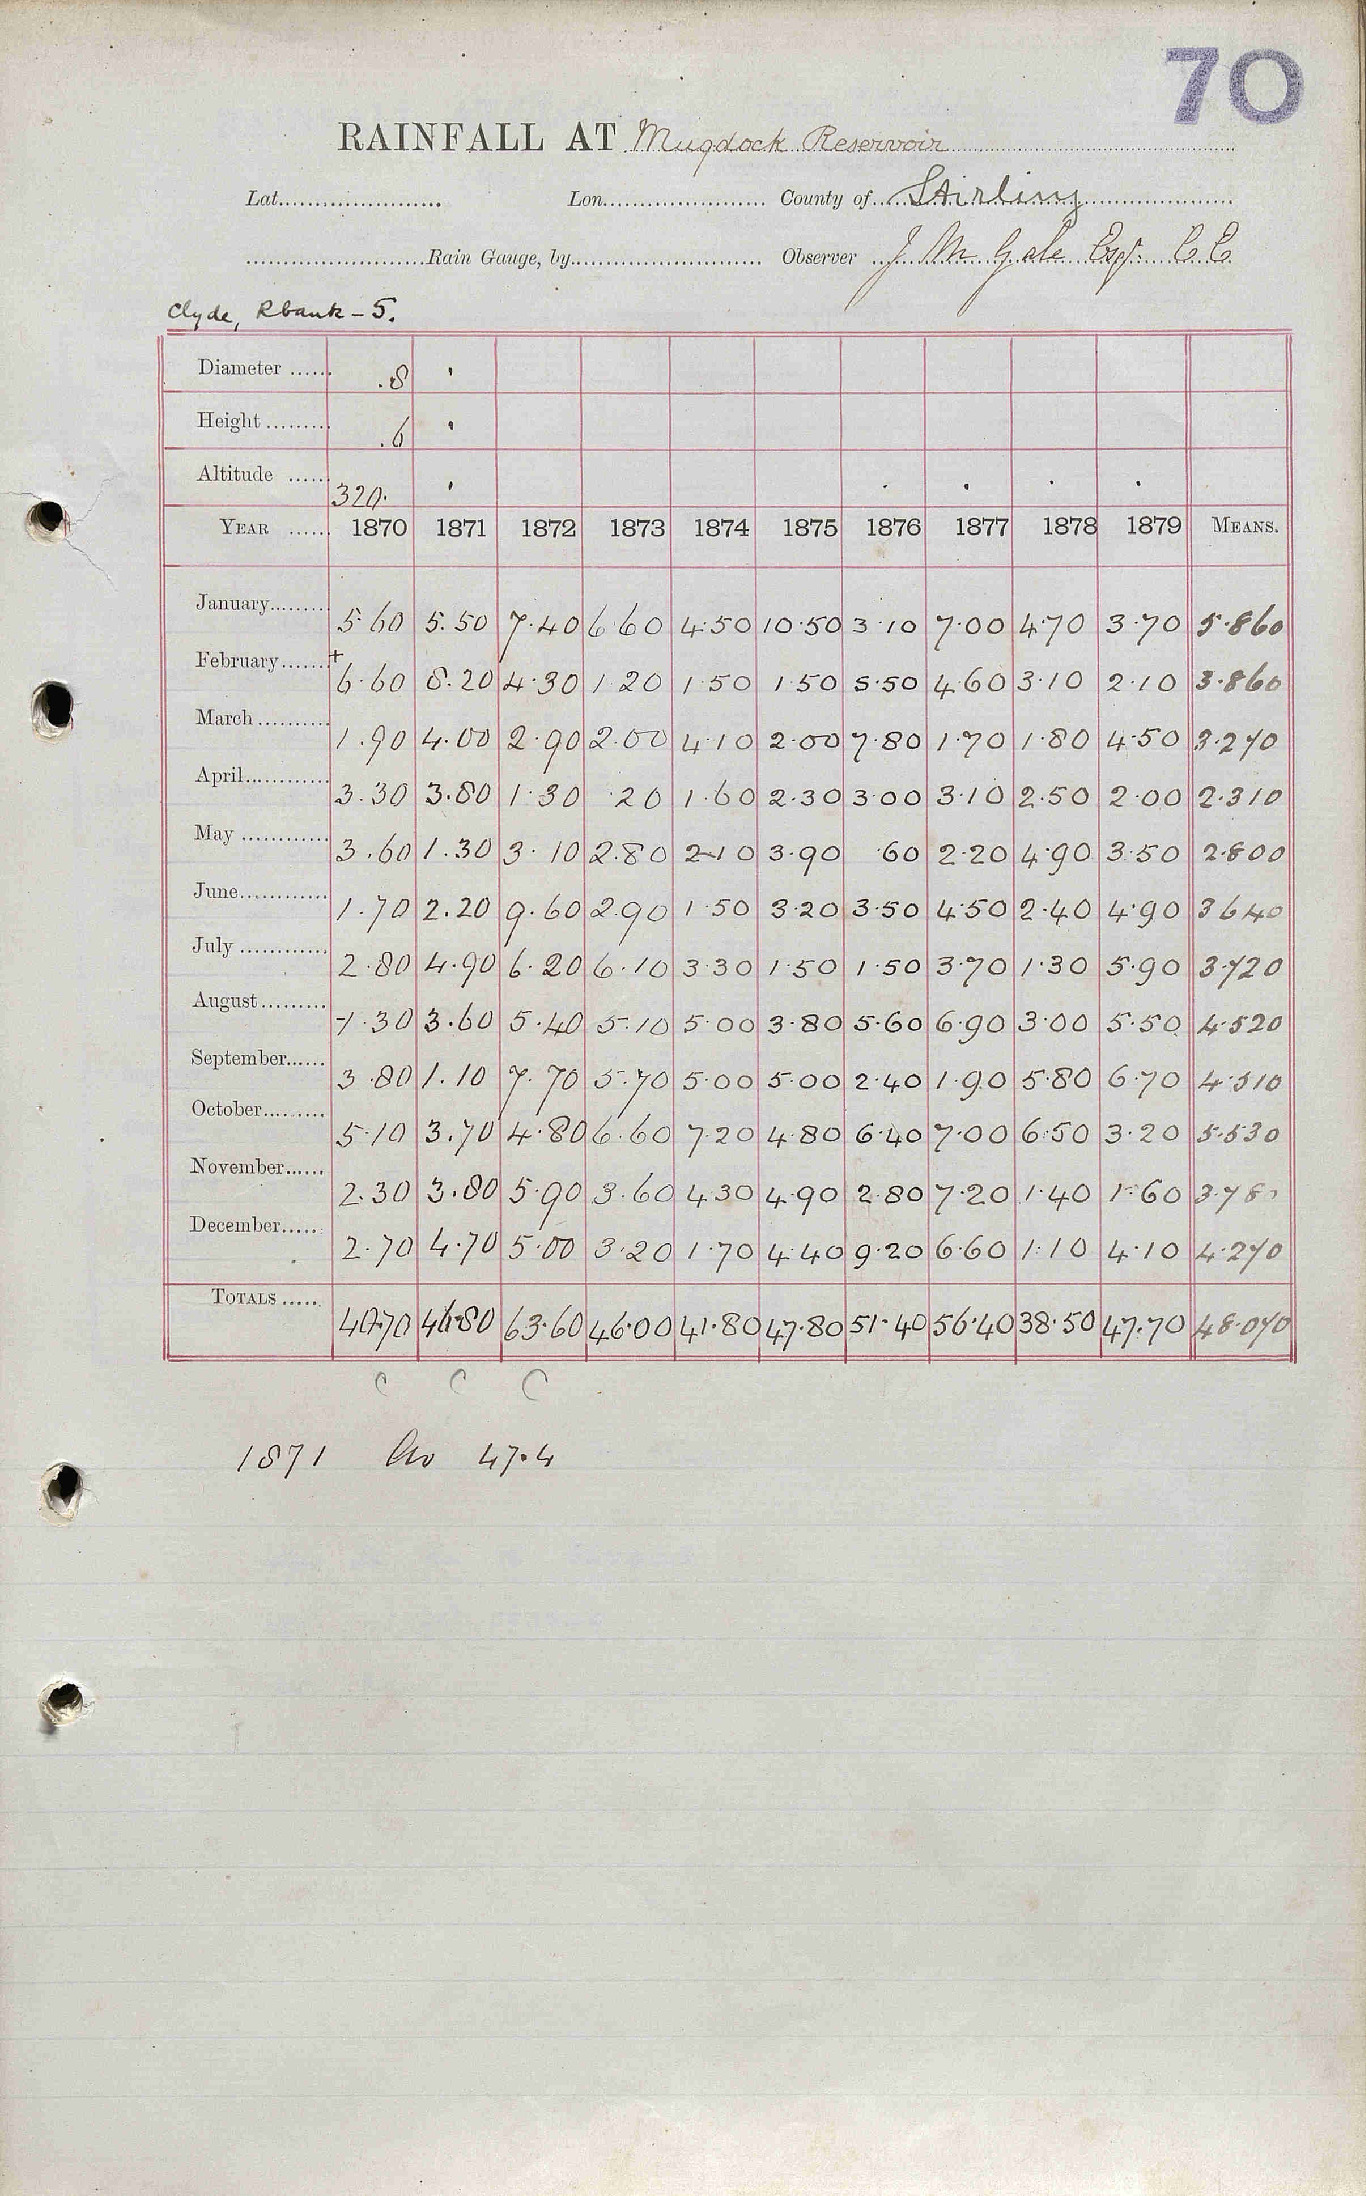 70
RAINFALL AT Mugdock Reservoir
Lat. Lon. County of Stirling
Rain Gauge, by Observer J M Gale Esqr. C E
Clyde, Rbank - 5.
Diameter .8 '
Height .6 '
Altitude 320. '
YEAR 1870 1871 1872 1873 1874 1875 1876 1877 1878 1879 MEANS.
January 5.60 5.50 7.40 6.60 4.50 10.50 3.10 7.00 4.70 3.70 5.860
February + 6.60 8.20 4.30 1.20 1.50 1.50 5.50 4.60 3.10 2.10 3.860
March 1.90 4.00 2.90 2.00 4.10 2.00 7.80 1.70 1.80 4.50 3.270
April 3.30 3.80 1.30 .20 1.60 2.30 3.00 3.10 2.50 2.00 2.310
May 3.60 1.30 3.10 2.80 2.10 3.90 .60 2.20 4.90 3.50 2.800
June 1.70 2.20 9.60 2.90 1.50 3.20 3.50 4.50 2.40 4.90 3.640
July 2.80 4.90 6.20 6.10 3.30 1.50 1.50 3.70 1.30 5.90 3.720
August 1.30 3.60 5.40 5.10 5.00 3.80 5.60 6.90 3.00 5.50 4.520
September 3.80 1.10 7.70 5.70 5.00 5.00 2.40 1.90 5.80 6.70 4.510
October 5.10 3.70 4.80 6.60 7.20 4.80 6.40 7.00 6.50 3.20 5.530
November 2.30 3.80 5.90 3.60 4.30 4.90 2.80 7.20 1.40 1.60 3.780
December 2.70 4.70 5.00 3.20 1.70 4.40 9.20 6.60 1.10 4.10 4.270
TOTALS 40.70 46.80 63.60 46.00 41.80 47.80 51.40 56.40 38.50 47.70 48.070
C C C
1871 47.4